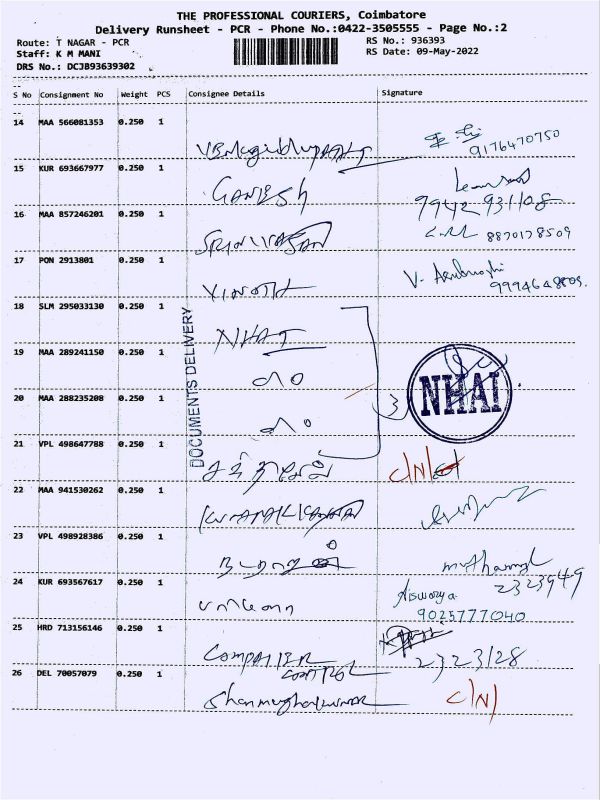 THE PROFESSIONAL COURIERS, Coimbatore
Delivery Runsheet - PCR - Phone No.:0422-3505555 - Page No.:2
Route: T NAGAR - PCR
RS No.: 936393
Staff: K M MANI
RS Date: 09-May-2022
DRS No.: DCJB93639302
S No Consignment No Weight PCS Consignee Details Signature
14 MAA 566081353 0.250 1
9176470750
15 KUR 693667977 0.250 1 GANESH
9942 931108
16 MAA 857246201 0.250 1 SRINIVASAN
8870178509
17 PON 2913801 0.250 1 VINOTH V.
9994648809.
18 SLM 295033130 0.250 1 NHAI
DOCUMENTS DELIVERY
19 MAA 289241150 0.250 1
20 MAA 288235208 0.250 1
3
NHAI
21 VPL 498647788 0.250 1 C/N/
22 MAA 941530262 0.250 1
23 VPL 498928386 0.250 1
muthammal
2323949
24 KUR 693567617 0.250 1 Aiswarya
9025777040
25 HRD 713156146 0.250 1 COMPUTER
CONTROL
2323128
26 DEL 70057079 0.250 1 Shanmughakumar C/N/